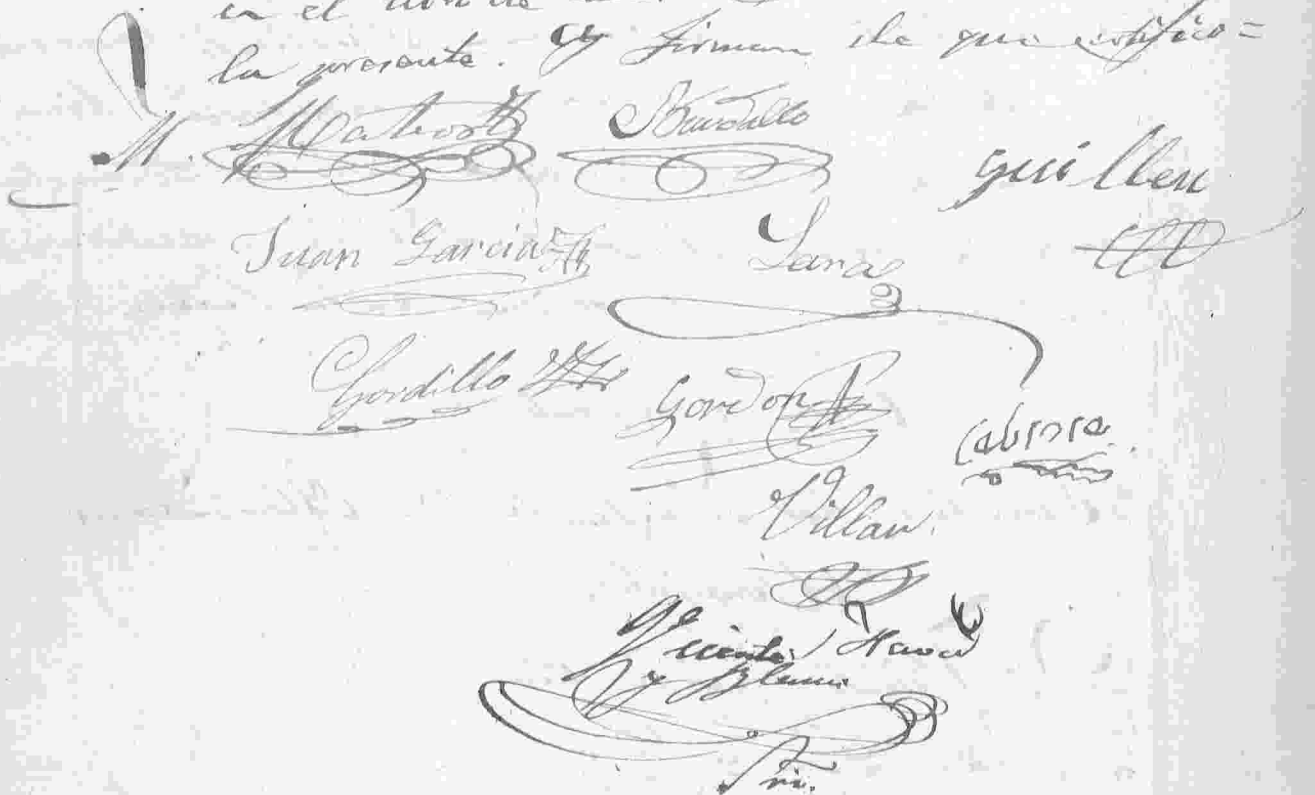 en el
la presente. y firman de que certifico=
M. Mateos
Guillen
Juan Garcia Lara
Gordillo Gordon
Cabrera
Villar
Vicente
y Blanco
Srio.